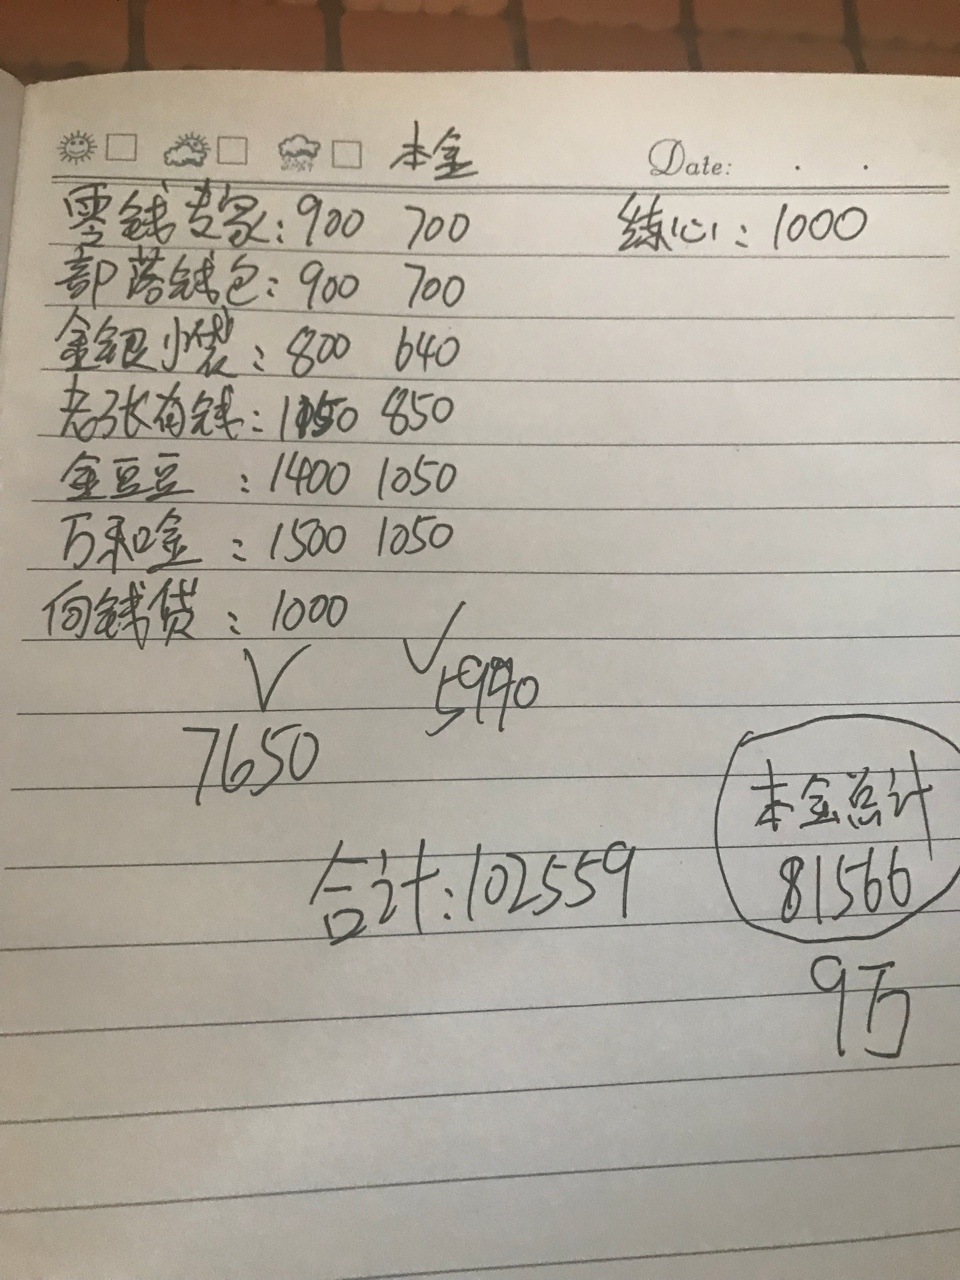 本金 Date:
零钱专家:900 700 练心:1000
部落钱包:900 700
金银小袋:800 640
老张有钱:1150 850
金豆豆:1400 1050
万和金:1500 1050
向钱贷:1000
5990
7650
本金总计
合计:102559 81566
9万